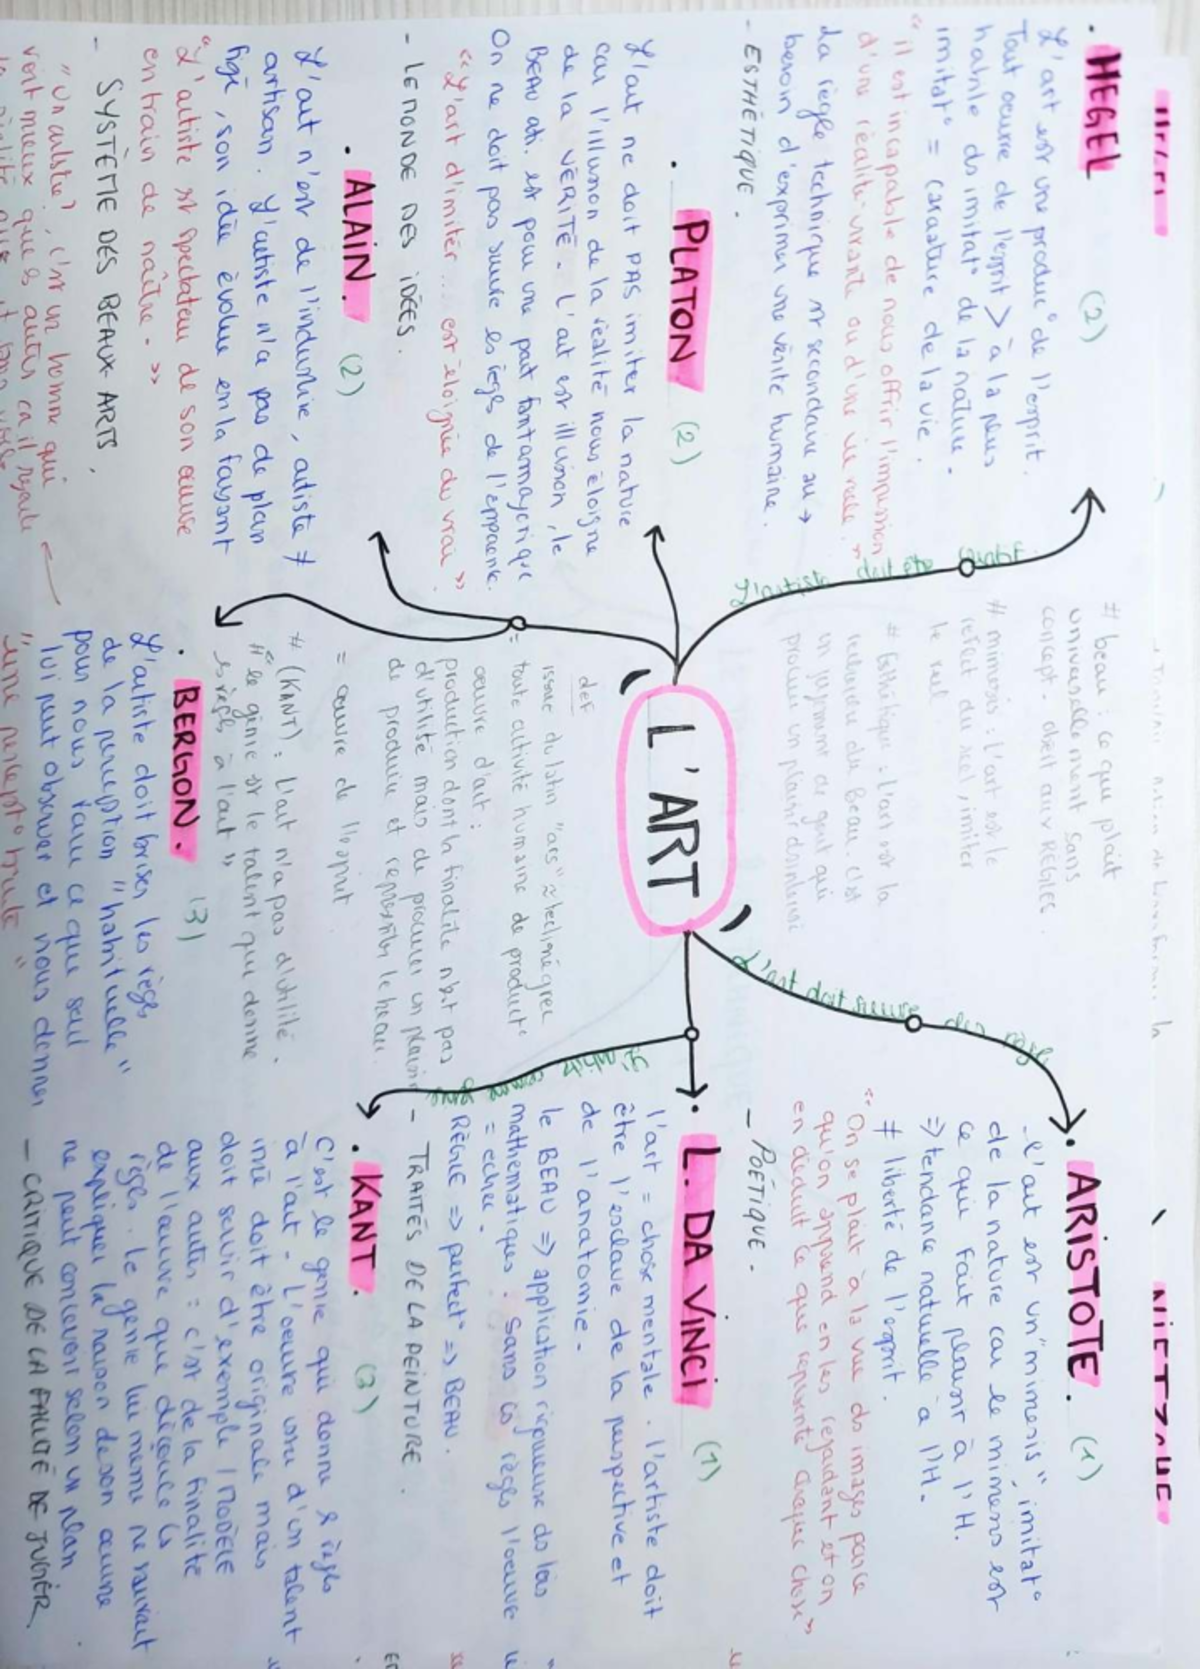 L'ART
def
issue du latin "ars" ≈ technégrec
= toute activité humaine de product°
œuvre d'art :
production dont la finalité n'est pas
d'utilité mais de procurer un plaisir
de produire et représenter le beau.
= œuvre de l'esprit
# (KANT) : L'art n'a pas d'utilité.
# "le génie est le talent qui donne
les règles à l'art"
# beau : ce qui plait
universellement sans
concept. obéit aux RÈGLES
# mimesis : L'art est le
reflet du réel, imiter
le réel
# Esthétique : L'art est la
recherche du Beau. c'est
un jugement de goût qui
procure un plaisir
L'artiste doit être
. HEGEL (2)
L'art est une produc° de l'esprit.
Tout œuvre de l'esprit > à la plus
habile des imitat° de la nature.
imitat° = caricature de la vie.
"il est incapable de nous offrir l'impression
d'une réalité vivante ou d'une vie réelle"
La règle technique est secondaire au →
besoin d'exprimer une vérité humaine.
- ESTHÉTIQUE.
. PLATON (2)
L'art ne doit PAS imiter la nature
car l'illusion de la réalité nous éloigne
de la VÉRITÉ. L'art est illusion, le
BEAU
On ne doit pas suivre les règles de l'apparence.
"L'art d'imiter... est éloignée du vrai"
- LE MONDE DES IDÉES.
. ALAIN. (2)
L'art n'est de l'industrie, artiste ≠
artisan. L'artiste n'a pas de plan
figé, son idée évolue en la faisant
"L'artiste est spectateur de son œuvre
en train de naître."
- SYSTÈME DES BEAUX ARTS.
. BERGON. (3)
L'artiste doit briser les règles
de la perception "habituelle"
pour nous faire ce que seul
lui peut observer et nous donner
"une percept° brute"
"Un artiste?, c'est un homme qui
voit mieux que les autres car il regarde
la réalité nue et sans voile
L'art doit suivre des règles
. ARISTOTE. (1)
- L'art est un "mimesis", imitat°
de la nature car le mimesis est
ce qui fait plaisir à l'H.
=> tendance naturelle à l'H.
≠ liberté de l'esprit.
"On se plait à la vue des images parce
qu'on apprend en les regardant et on
en déduit ce que représente chaque chose"
- POÉTIQUE -
. L. DA VINCI (1)
l'art = chose mentale. l'artiste doit
être l'esclave de la perspective et
de l'anatomie.
le BEAU => application rigoureuse des lois
mathématiques. Sans ces règles l'œuvre
= echec.
RÈGLE => perfect° => BEAU.
- TRAITÉS DE LA PEINTURE.
L'artiste comme génie
. KANT. (3)
C'est le génie qui donne les règles
à l'art. L'œuvre issu d'un talent
inné doit être originale mais
doit servir d'exemple / MODÈLE
aux autres : c'est de la finalité
de l'œuvre que découle les
règles. Le génie lui même ne saurait
expliquer la raison de son œuvre
ne peut concevoir selon un plan
- CRITIQUE DE LA FALUTÉ DE JUGER.
NIETZCHE